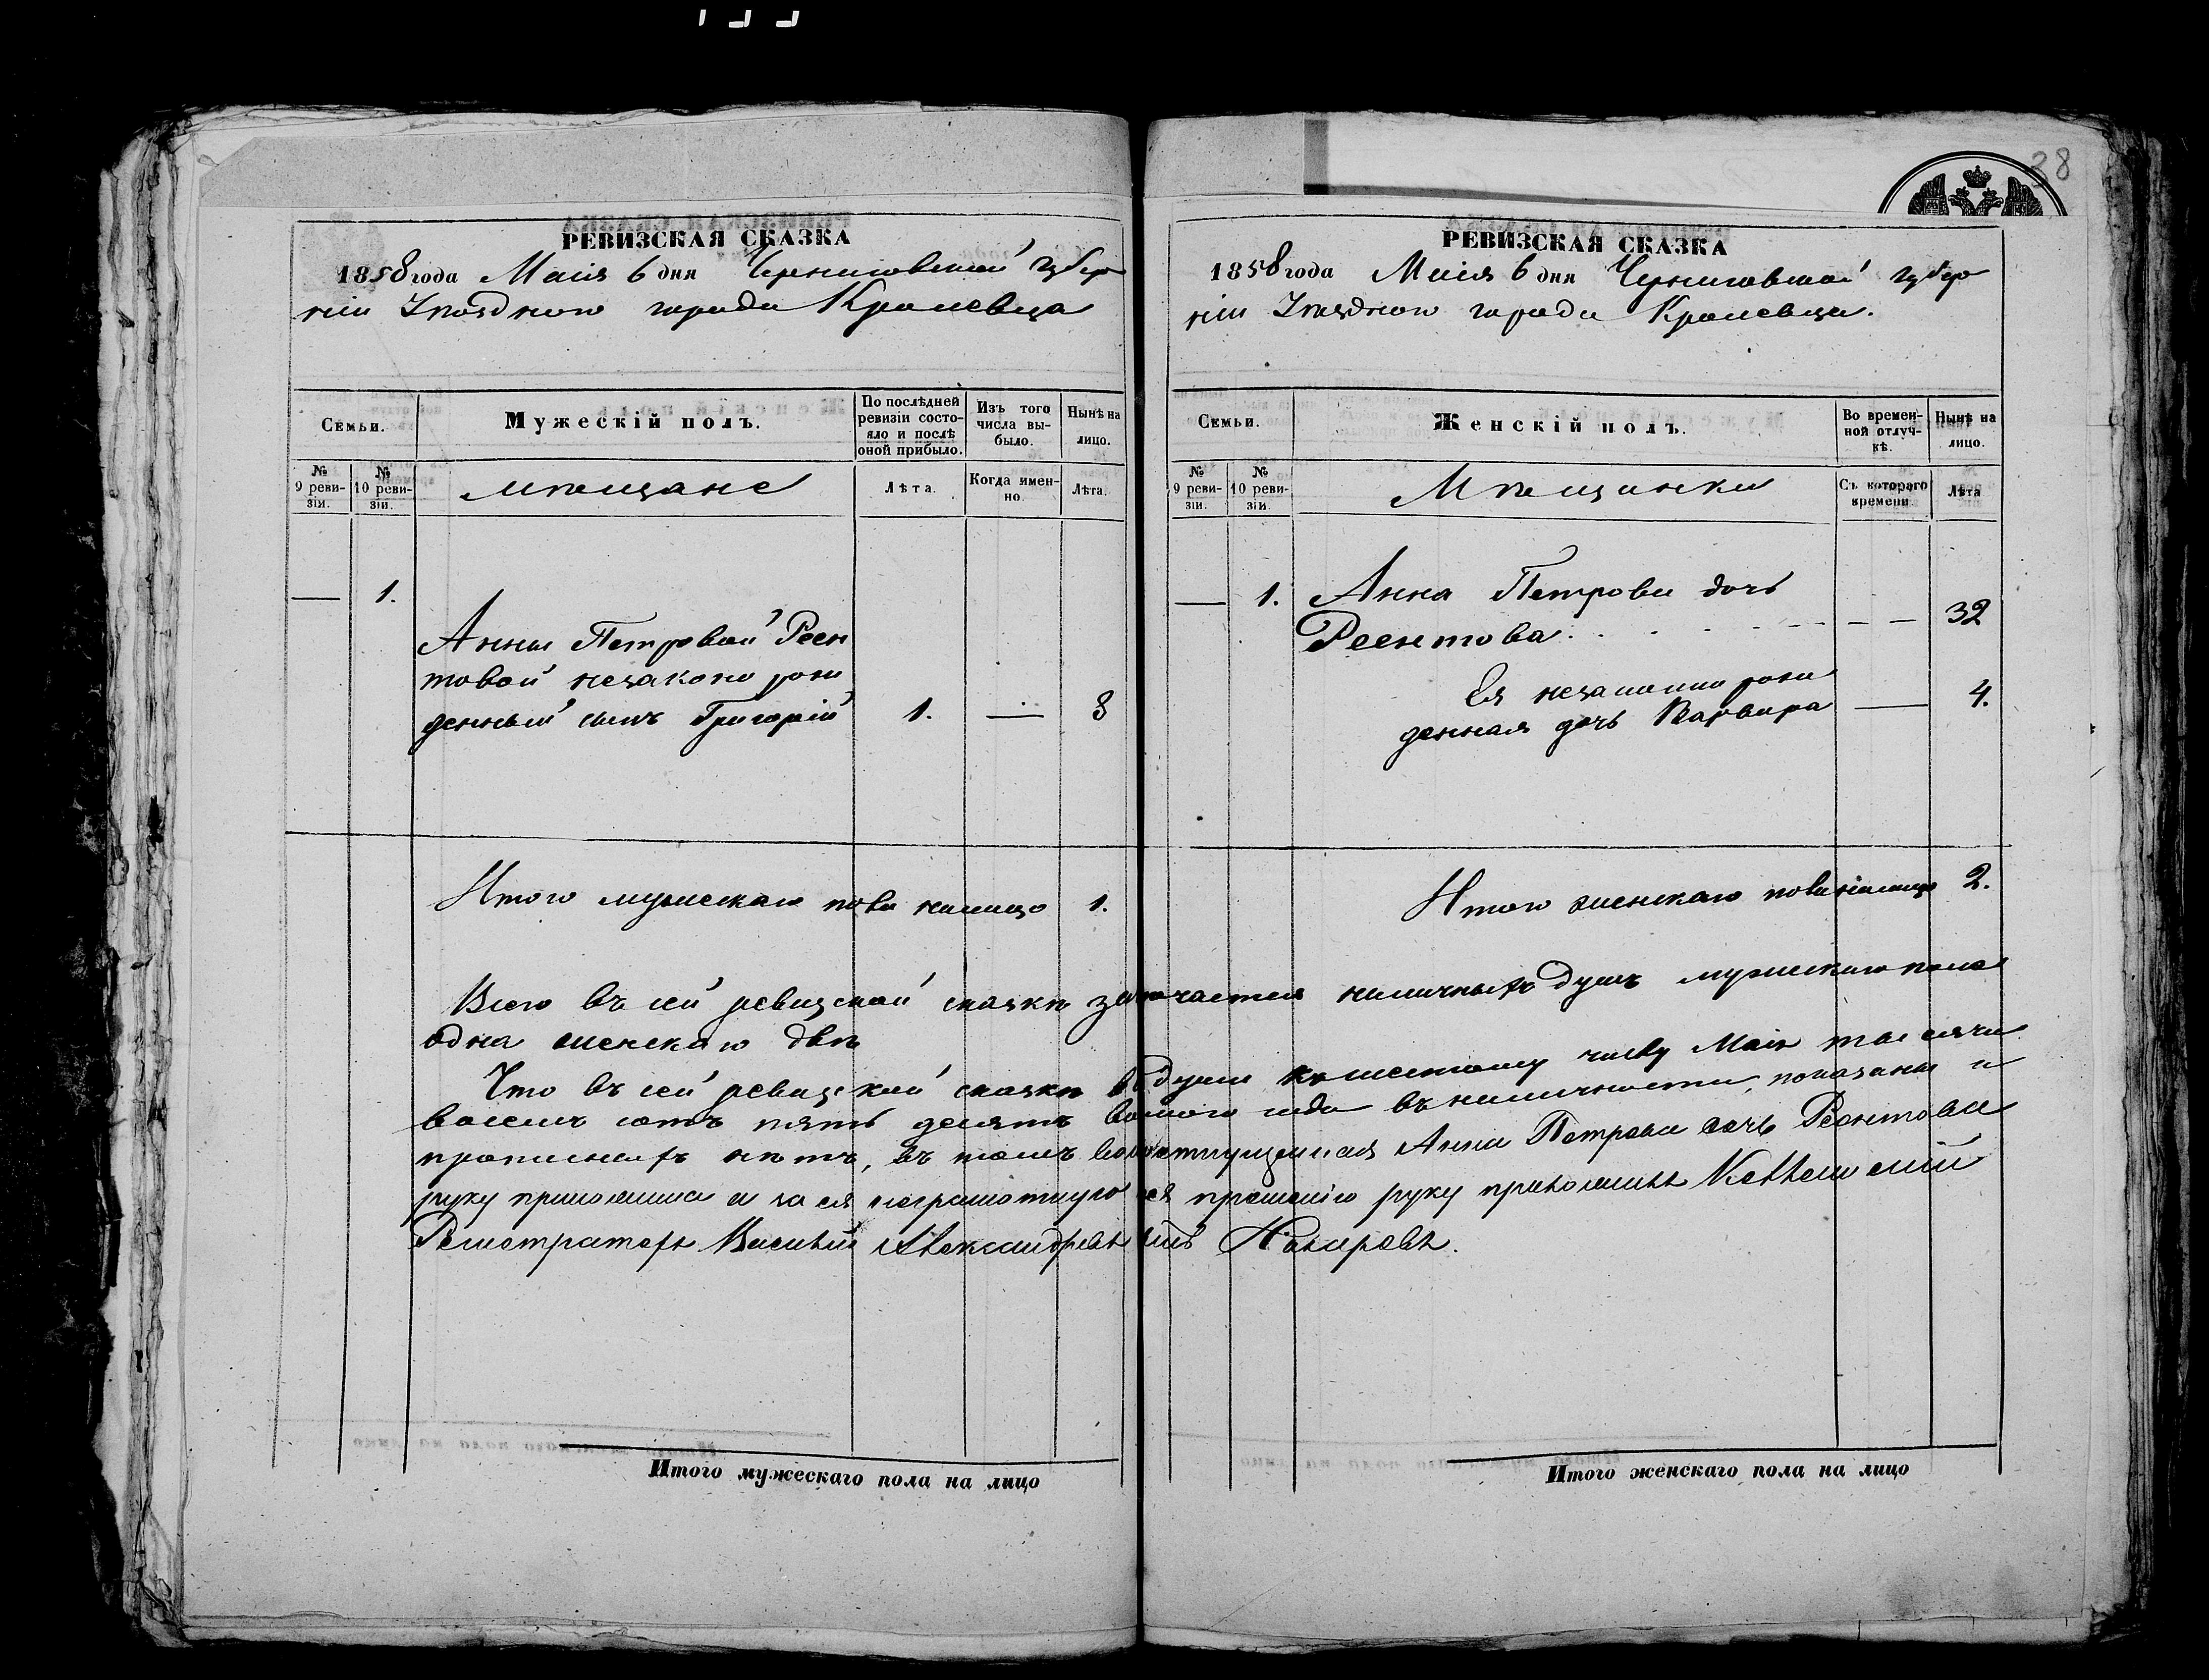 38
РЕВИЗСКАЯ СКАЗКА
1858 года Маія 6 дня Черниговской губер
ніи Уѣзднаго города Кролевца
Семьи.
Мужескій полъ.
По послѣдней ревизіи состояло и послѣ оной прибыло.
Изъ того числа выбыло.
Нынѣ на лицо.
№ 9 ревизіи.
№ 10 ревизіи.
Мѣщане
Лѣта.
Когда именно.
Лѣта.
— 1.
Анны Петровой Реен
товой незаконо рож
денный сынъ Григорій 1. — 8
Итого мужескаго пола налицо 1.
РЕВИЗСКАЯ СКАЗКА
1858 года Маія 6 дня Черниговской губер
ніи Уѣзднаго города Кролевца.
Семьи.
Женскій полъ.
Во временной отлучкѣ.
Нынѣ на лицо.
№ 9 ревизіи.
№ 10 ревизіи.
Мѣщанки
Съ котораго времени
Лѣта
— 1. Анна Петрова дочь
Реентова. — — 32
Ея незаконно рож
денная дочь Варвара — 4.
Итого женскаго пола налицо 2.
Всего въ сей ревизской сказкѣ заключается наличныхъ душъ мужескаго пола
одна женскаго двѣ
Что въ сей ревизской сказкѣ всѣ души къ шестому числу Маія тысяча
восемь сотъ пять десять восмого года въ наличности показаны и
прописныхъ нѣтъ, въ томъ Анна Петрова дочь Реентова
руку приложила а за ея неграмотную ея прошенію руку приложилъ Коллежскій
Регистраторъ Василій Александровъ сынъ
Итого мужескаго пола на лицо
Итого женскаго пола на лицо